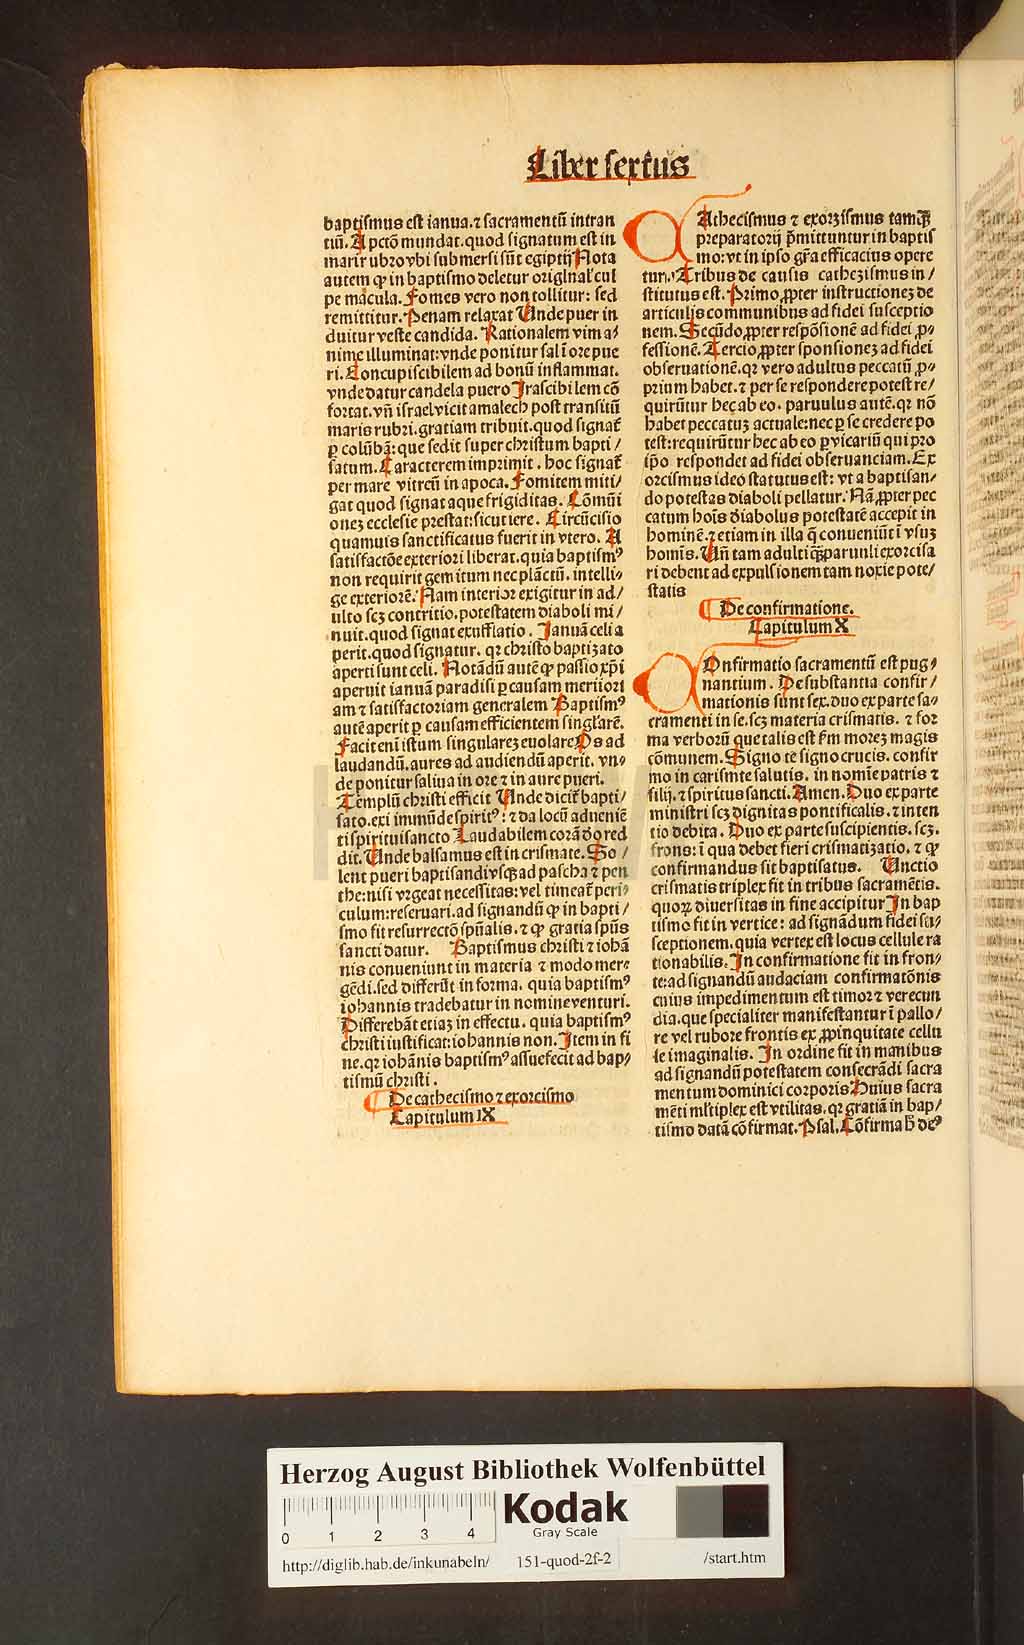 Liber sextus
baptismus est ianua. ⁊ sacramentū intran
tiū. A pctō mundat. quod signatum est in
mari rubro vbi submersi sūt egiptij Nota
autem ꝙ in baptismo deletur original' cul
pe macula. Fomes vero non tollitur: sed
remittitur. Penam relaxat Unde puer in
duitur veste candida. Rationalem vim a⸗
nime illuminat: vnde ponitur sal ī ore pue
ri. Concupiscibilem ad bonū inflammat.
vnde datur candela puero Irascibilem cō
fortat. vn̄ israel vicit amalech post transitū
maris rubri. gratiam tribuit. quod signat̄
ꝑ colūbā: que sedit super christum bapti /
satum. Caracterem imprimit . hoc signat̄
per mare vitreū in apoca. Fomitem miti /
gat quod signat aque frigiditas. Cōmūi
onez ecclesie prestat: sicut iere . Circūcisio
quamuis sanctificatus fuerit in vtero. A
satisfactōe exteriori liberat. quia baptism⁹
non requirit gemitum nec plāctū. intelli⸗
ge exteriorē. Nam interior exigitur in ad /
ulto scz contritio. potestatem diaboli mi /
nuit. quod signat exufflatio . Januā celi a
perit. quod signatur. qꝛ christo baptizato
aperti sunt celi. Notādū autē ꝙ passio xp̄i
aperuit ianuā paradisi ꝑ causam meritori
am ⁊ satisfactoriam generalem Baptism⁹
autē aperit ꝑ causam efficientem singlarē.
Facit eni istum singularez euolare Os ad
laudandū. aures ad audiendū aperit. vn⸗
de ponitur saliua in ore ⁊ in aure pueri.
Templū christi efficit Unde dicit̄ bapti /
sato. exi immūde spirit⁹: ⁊ da locū aduenie
ti spiritui sancto Laudabilem corā do red
dit. Unde balsamus est in crismate. So /
lent pueri baptisandi vsqꝫ ad pascha ⁊ pen
the: nisi vrgeat necessitas: vel timeat̄ peri⸗
culum: reseruari. ad signandū ꝙ in bapti /
smo fit resurrectō spūalis. ⁊ ꝙ gratia spūs
sancti datur. Baptismus christi ⁊ iohā
nis conueniunt in materia ⁊ modo mer⸗
gēdi. sed differūt in forma. quia baptism⁹
iohannis tradebatur in nomine venturi.
Differebāt etiaz in effectu. quia baptism⁹
christi iustificat: iohannis non. Item in fi
ne. qꝛ iohānis baptism⁹ assuefecit ad bap⸗
tismū christi .
De cathecismo ⁊ exorcismo
Capitulum IX
CAthecismus ⁊ exorzismus tamqꝫ
preparatorij p̄mittuntur in baptis
mo: vt in ipso gr̄a efficacius opere
tur. Tribus de causis cathezismus in /
stitutus est. Primo ꝓpter instructionez de
articulis communibus ad fidei susceptio
nem. Secūdo ꝓpter respōsionē ad fidei ꝓ⸗
fessionē. Tercio ꝓpter sponsionez ad fidei
obseruationē. qꝛ vero adultus peccatū ꝓ⸗
prium habet. ⁊ per se respondere potest re /
quirūtur hec ab eo. paruulus autē. qꝛ nō
habet peccatuz actuale: nec ꝑ se credere po
test: requirūtur hec ab eo ꝑ vicariū qui pro
ip̄o respondet ad fidei obseruanciam. Ex
orcismus ideo statutus est: vt a baptisan /
do potestas diaboli pellatur. Nā ꝓpter pec
catum hoīs diabolus potestatē accepit in
hominē. ⁊ etiam in illa q̄ conueniūt ī vsuz
homīs. Un̄ tam adulti qꝫ paruuli exorcisa
ri debent ad expulsionem tam noxie pote /
statis
De confirmatione.
Capitulum X
COnfirmatio sacramentū est pug⸗
nantium . De substantia confir /
mationis sunt sex. duo ex parte sa⸗
cramenti in se. scz materia crismatis. ⁊ for
ma verborū que talis est fm morez magis
cōmunem. Signo te signo crucis. confir
mo in carismte salutis. in nomīe patris ⁊
filij. ⁊ spiritus sancti. Amen. Duo ex parte
ministri scz dignitas pontificalis. ⁊ inten
tio debita . Duo ex parte suscipientis. scz.
frons: ī qua debet fieri crismatizatio. ⁊ ꝙ
confirmandus sit baptisatus. Unctio
crismatis triplex fit in tribus sacramētis.
quoꝝ diuersitas in fine accipitur In bap
tismo fit in vertice: ad signādum fidei su⸗
sceptionem. quia vertex est locus cellule ra
tionabilis. In confirmatione fit in fron⸗
te: ad signandū audaciam confirmatōnis
cuius impedimentum est timor ⁊ verecun
dia. que specialiter manifestantur ī pallo /
re vel rubore frontis ex ꝓpinquitate cellu
le imaginalis. In ordine fit in manibus
ad signandū potestatem consecrādi sacra
mentum dominici corporis Huius sacra
mēti mltiplex est vtilitas. qꝛ gratiā in bap /
tismo datā cōfirmat. Psal. Cōfirma h̄ de⁹
Herzog August Bibliothek Wolfenbüttel
0 1 2 3 4
Kodak
Gray Scale
http://diglib.hab.de/inkunabeln/ 151-quod-2f-2 /start.htm